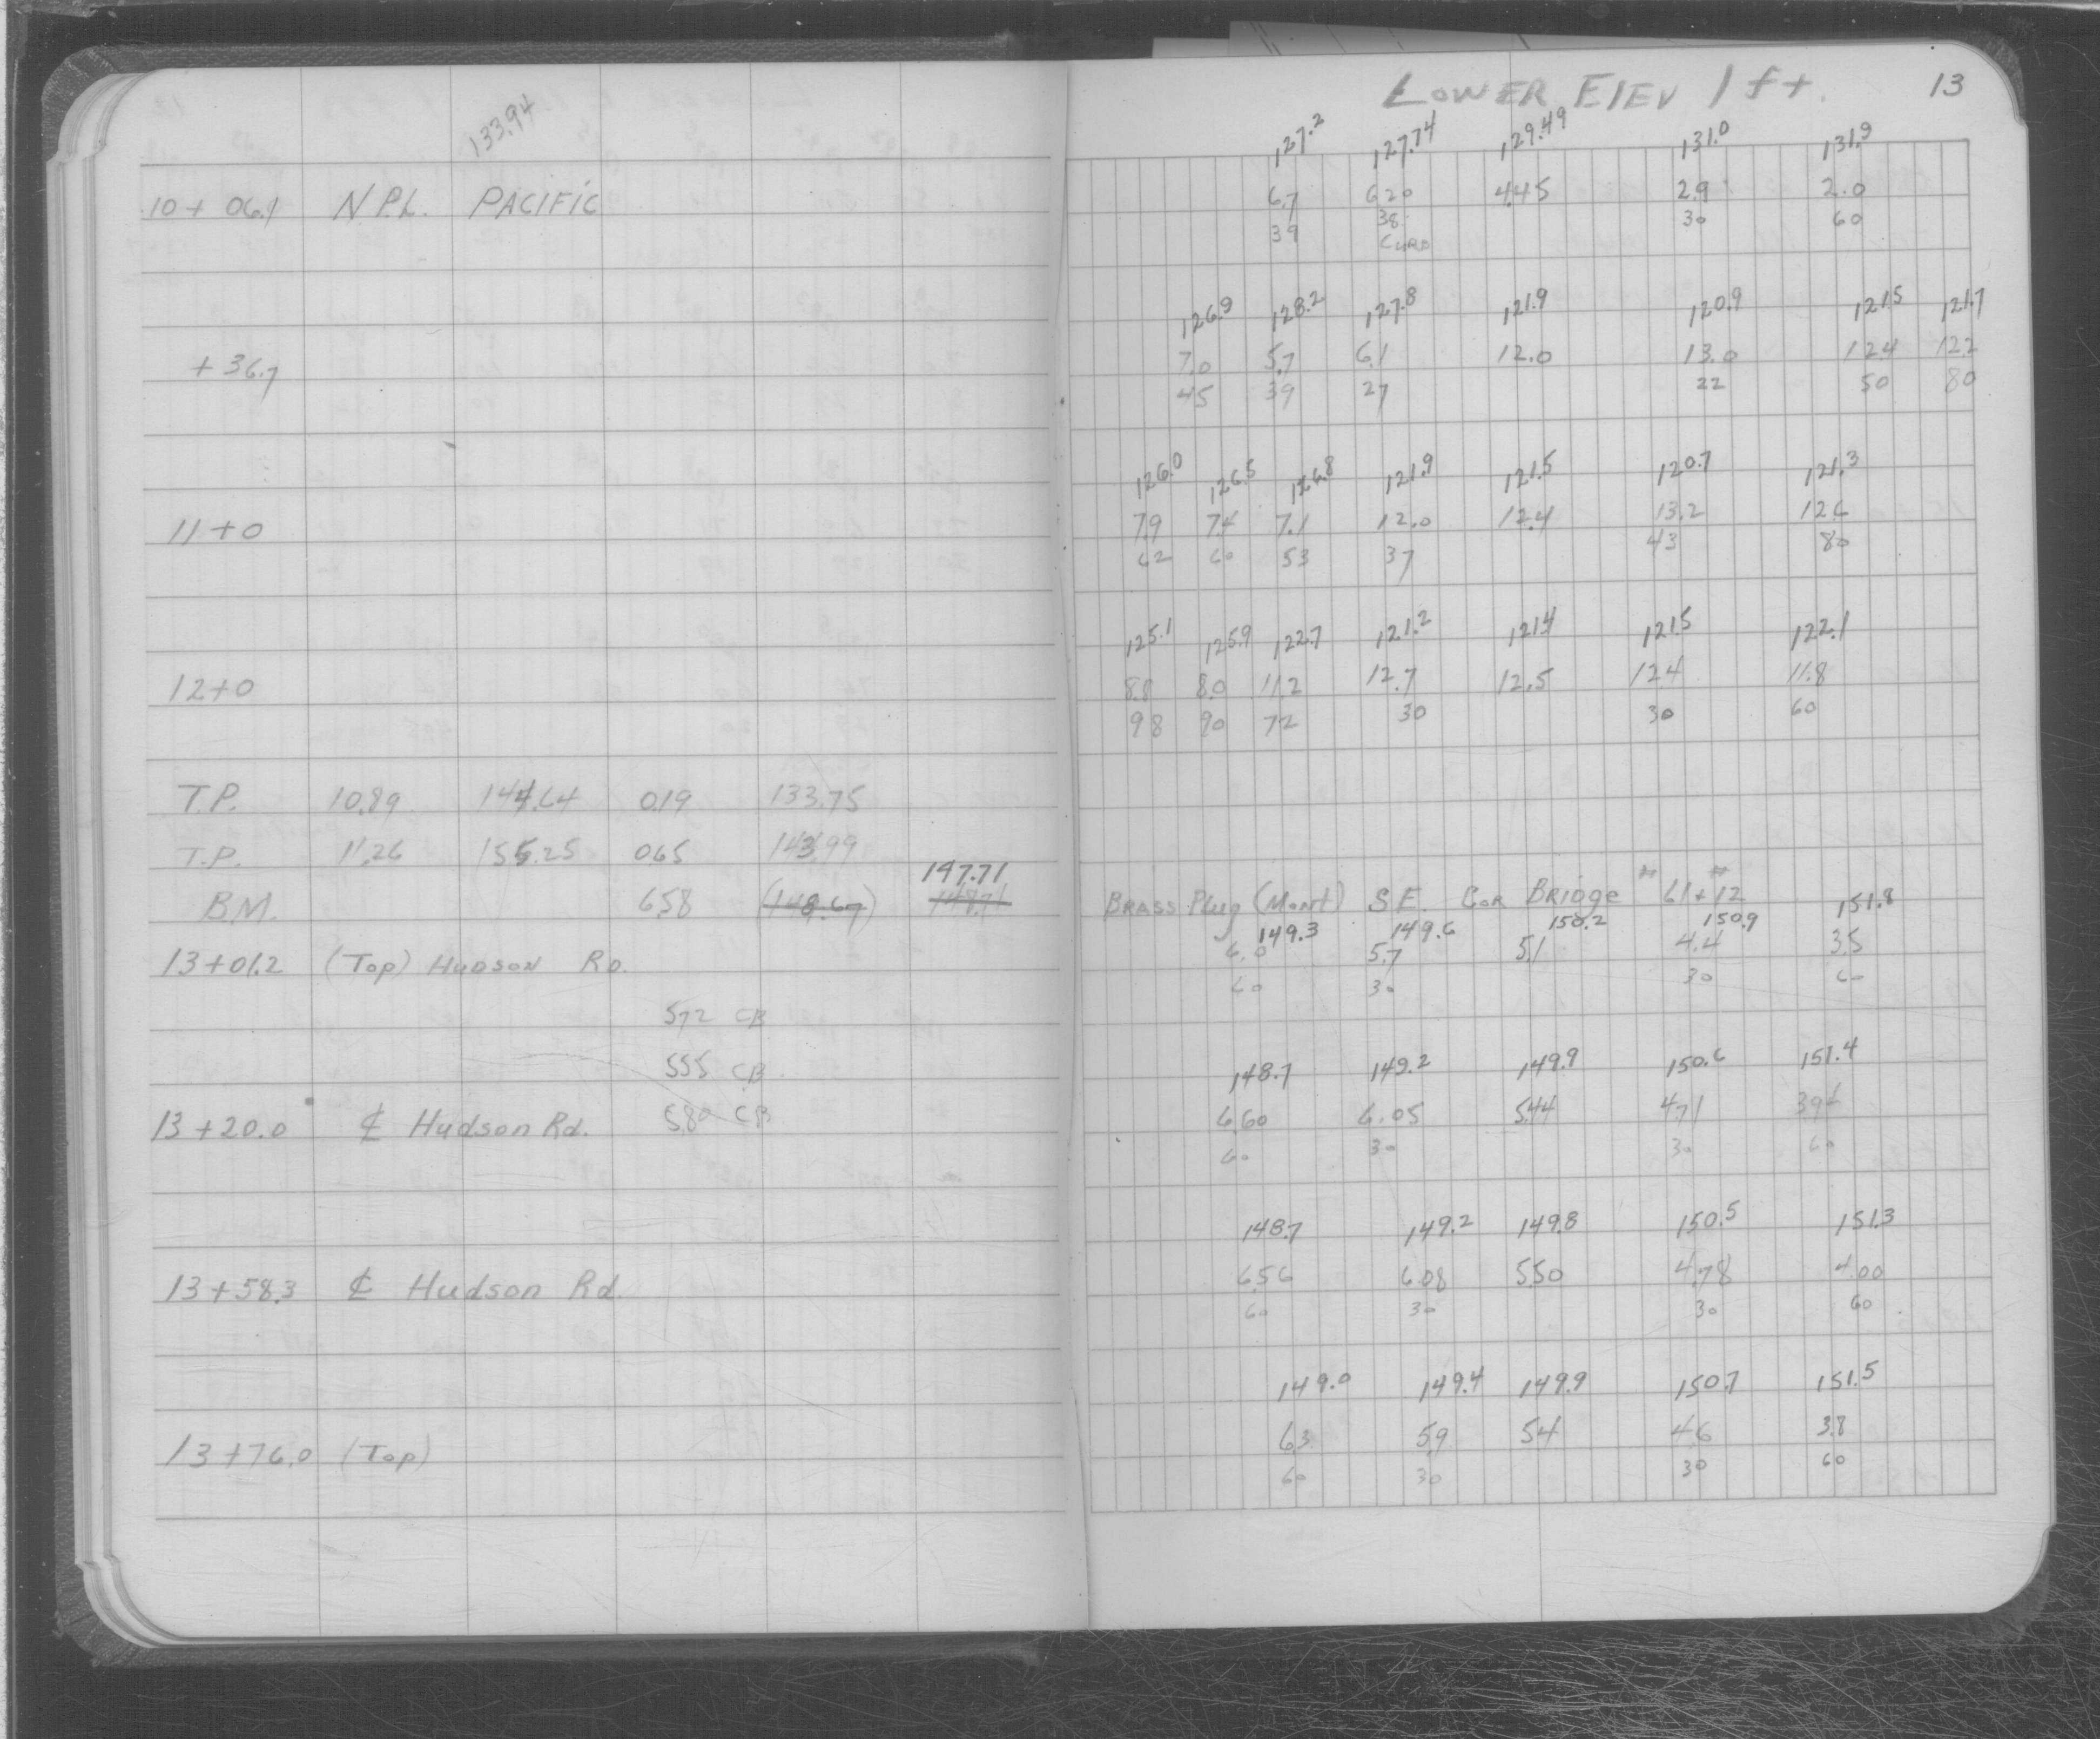 133.94
10+06.1 N P.L. PACIFIC
+36.7
11+0
12+0
T.P. 10.89 144.64 0.19 133.75
T.P. 11.26 155.25 0.65 143.99
147.71
B.M. 6.58 (148.67) 148.71
13+01.2 (Top) Hudson Rd.
5.72 CB
5.55 CB
13+20.0 ℄ Hudson Rd. 5.80 CB
13+58.3 ℄ Hudson Rd.
13+76.0 (Top)
LOWER ELEV 1 ft. 13
127.2 127.74 129.49 131.0 131.9
6.7 6.20 4.45 2.9 2.0
39 38 30 60
CURB
126.9 128.2 127.8 121.9 120.9 121.5 121.7
7.0 5.7 6.1 12.0 13.0 12.4 12.2
45 39 27 22 50 80
126.0 126.5 126.8 121.9 121.5 120.7 121.3
7.9 7.4 7.1 12.0 12.4 13.2 12.6
62 60 53 37 43 80
125.1 125.9 122.7 121.2 121.4 121.5 122.1
8.8 8.0 11.2 12.7 12.5 12.4 11.8
98 90 72 30 30 60
BRASS Plug (Mont) S.E. COR BRIDGE "L1+12"
149.3 149.6 150.2 150.9 151.8
6.0 5.7 5.1 4.4 3.5
60 30 30 60
148.7 149.2 149.9 150.6 151.4
6.60 6.05 5.44 4.71 3.94
60 30 30 60
148.7 149.2 149.8 150.5 151.3
6.56 6.08 5.50 4.78 4.00
60 30 30 60
149.0 149.4 149.9 150.7 151.5
6.3 5.9 5.4 4.6 3.8
60 30 30 60